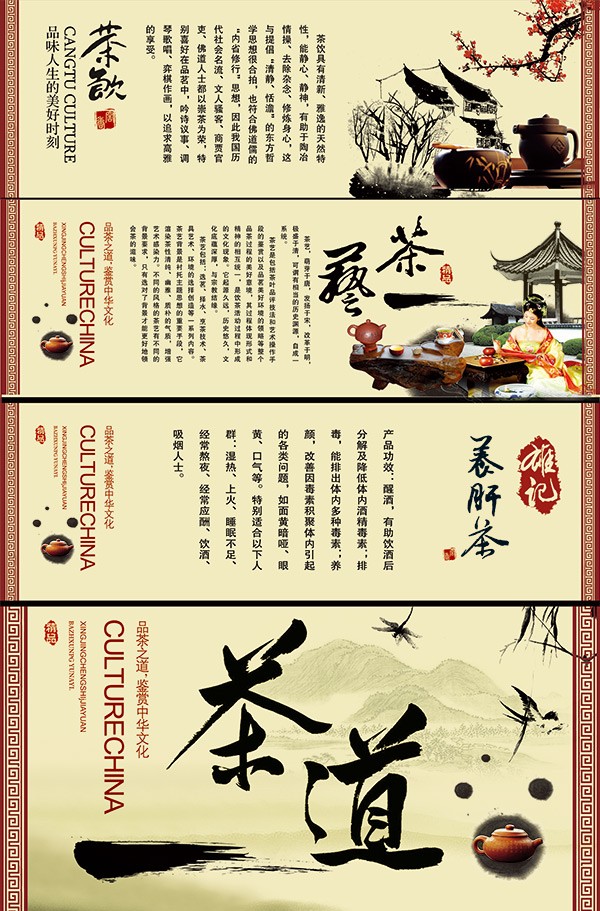 茶饮具有清新、雅逸的天然特
性，能静心、静神，有助于陶冶
情操、去除杂念、修炼身心，这
与提倡“清静、恬澹”的东方哲
学思想很合拍，也符合佛道儒的
“内省修行”思想，因此我国历
代社会名流、文人骚客、商贾官
吏、佛道人士都以崇茶为荣，特
别喜好在品茗中，吟诗议事、调
琴歌唱、弈棋作画，以追求高雅
的享受。
茶飲
CANGTU CULTURE
品味人生的美好时刻
茶藝
精品
茶艺，萌芽于唐，发扬于宋，改革于明，
极盛于清，可谓有相当的历史渊源，自成一
系统。
茶艺是包括茶叶品评技法和艺术操作手
段的鉴赏以及品茗美好环境的领略等整个
品茶过程的美好意境，其过程体现形式和
精神的相互统一，是饮茶活动过程中形成
的文化现象。它起源久远，历史悠久，文
化底蕴深厚，与宗教结缘。
茶艺包括：选茗、择水、烹茶技术、茶
具艺术、环境的选择创造等一系列内容。
茶艺背景是衬托主题思想的重要手段，它
渲染茶性清纯、幽雅、质朴的气质，增强
艺术感染力。不同的风格的茶艺有不同的
背景要求，只有选对了背景才能更好地领
会茶的滋味。
品茶之道，鉴赏中华文化
CULTURECHINA
XINGJINGCHENGSHIJIAYUAN
BAZHXUNPG YUNAYE
精品
雄记
养肝茶
产品功效：醒酒，有助饮酒后
分解及降低体内酒精毒素；排
毒，能排出体内多种毒素；养
颜，改善因毒素积聚体内引起
的各类问题，如面黄暗哑、眼
黄、口气等。特别适合以下人
群：湿热、上火、睡眠不足、
经常熬夜、经常应酬、饮酒、
吸烟人士。
品茶之道，鉴赏中华文化
CULTURECHINA
XINGJINGCHENGSHIJIAYUAN
BAZHXUNPG YUNAYE
精品
茶道
品茶之道，鉴赏中华文化
CULTURECHINA
XINGJINGCHENGSHIJIAYUAN
BAZHXUNPG YUNAYE
精品